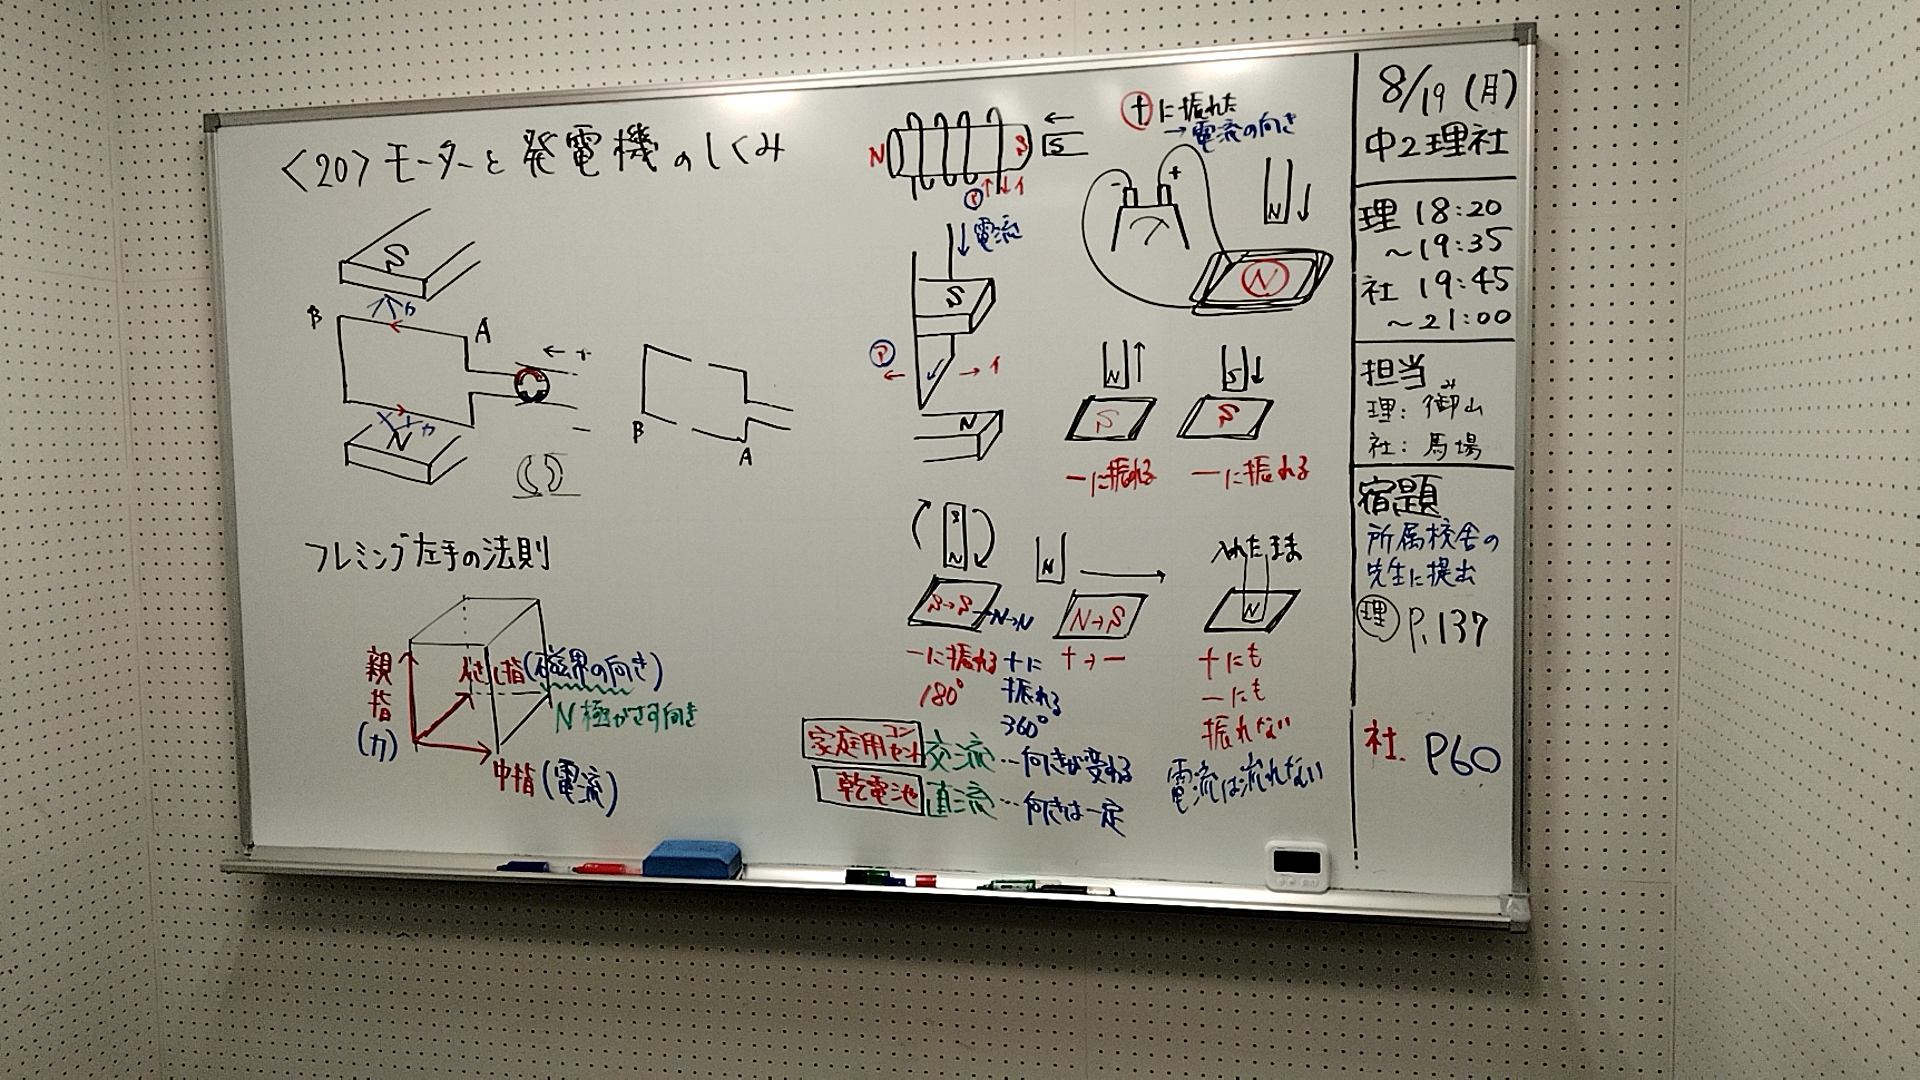 〈20〉モーターと発電機のしくみ
S
B
力
A
← +
力
N
−
B
A
フレミング左手の法則
親指
(力)
人さし指(磁界の向き)
N極がさす向き
中指(電流)
N
S
←
S
ア
イ
電流
S
ア
イ
N
+に振れた
→電流の向き
−
+
N
N
N
S
−に振れる
S
S
−に振れる
S
N
S→S
→N→N
−に振れる
180°
+に
振れる
360°
N
N→S
+→−
入れたまま
N
+にも
−にも
振れない
電流は流れない
家庭用コンセント 交流…向きが変わる
乾電池 直流…向きは一定
8/19(月)
中2理社
理 18:20
~19:35
社 19:45
~21:00
担当
み
理:御山
社:馬場
宿題
所属校舎の
先生に提出
理 P.137
社. P60